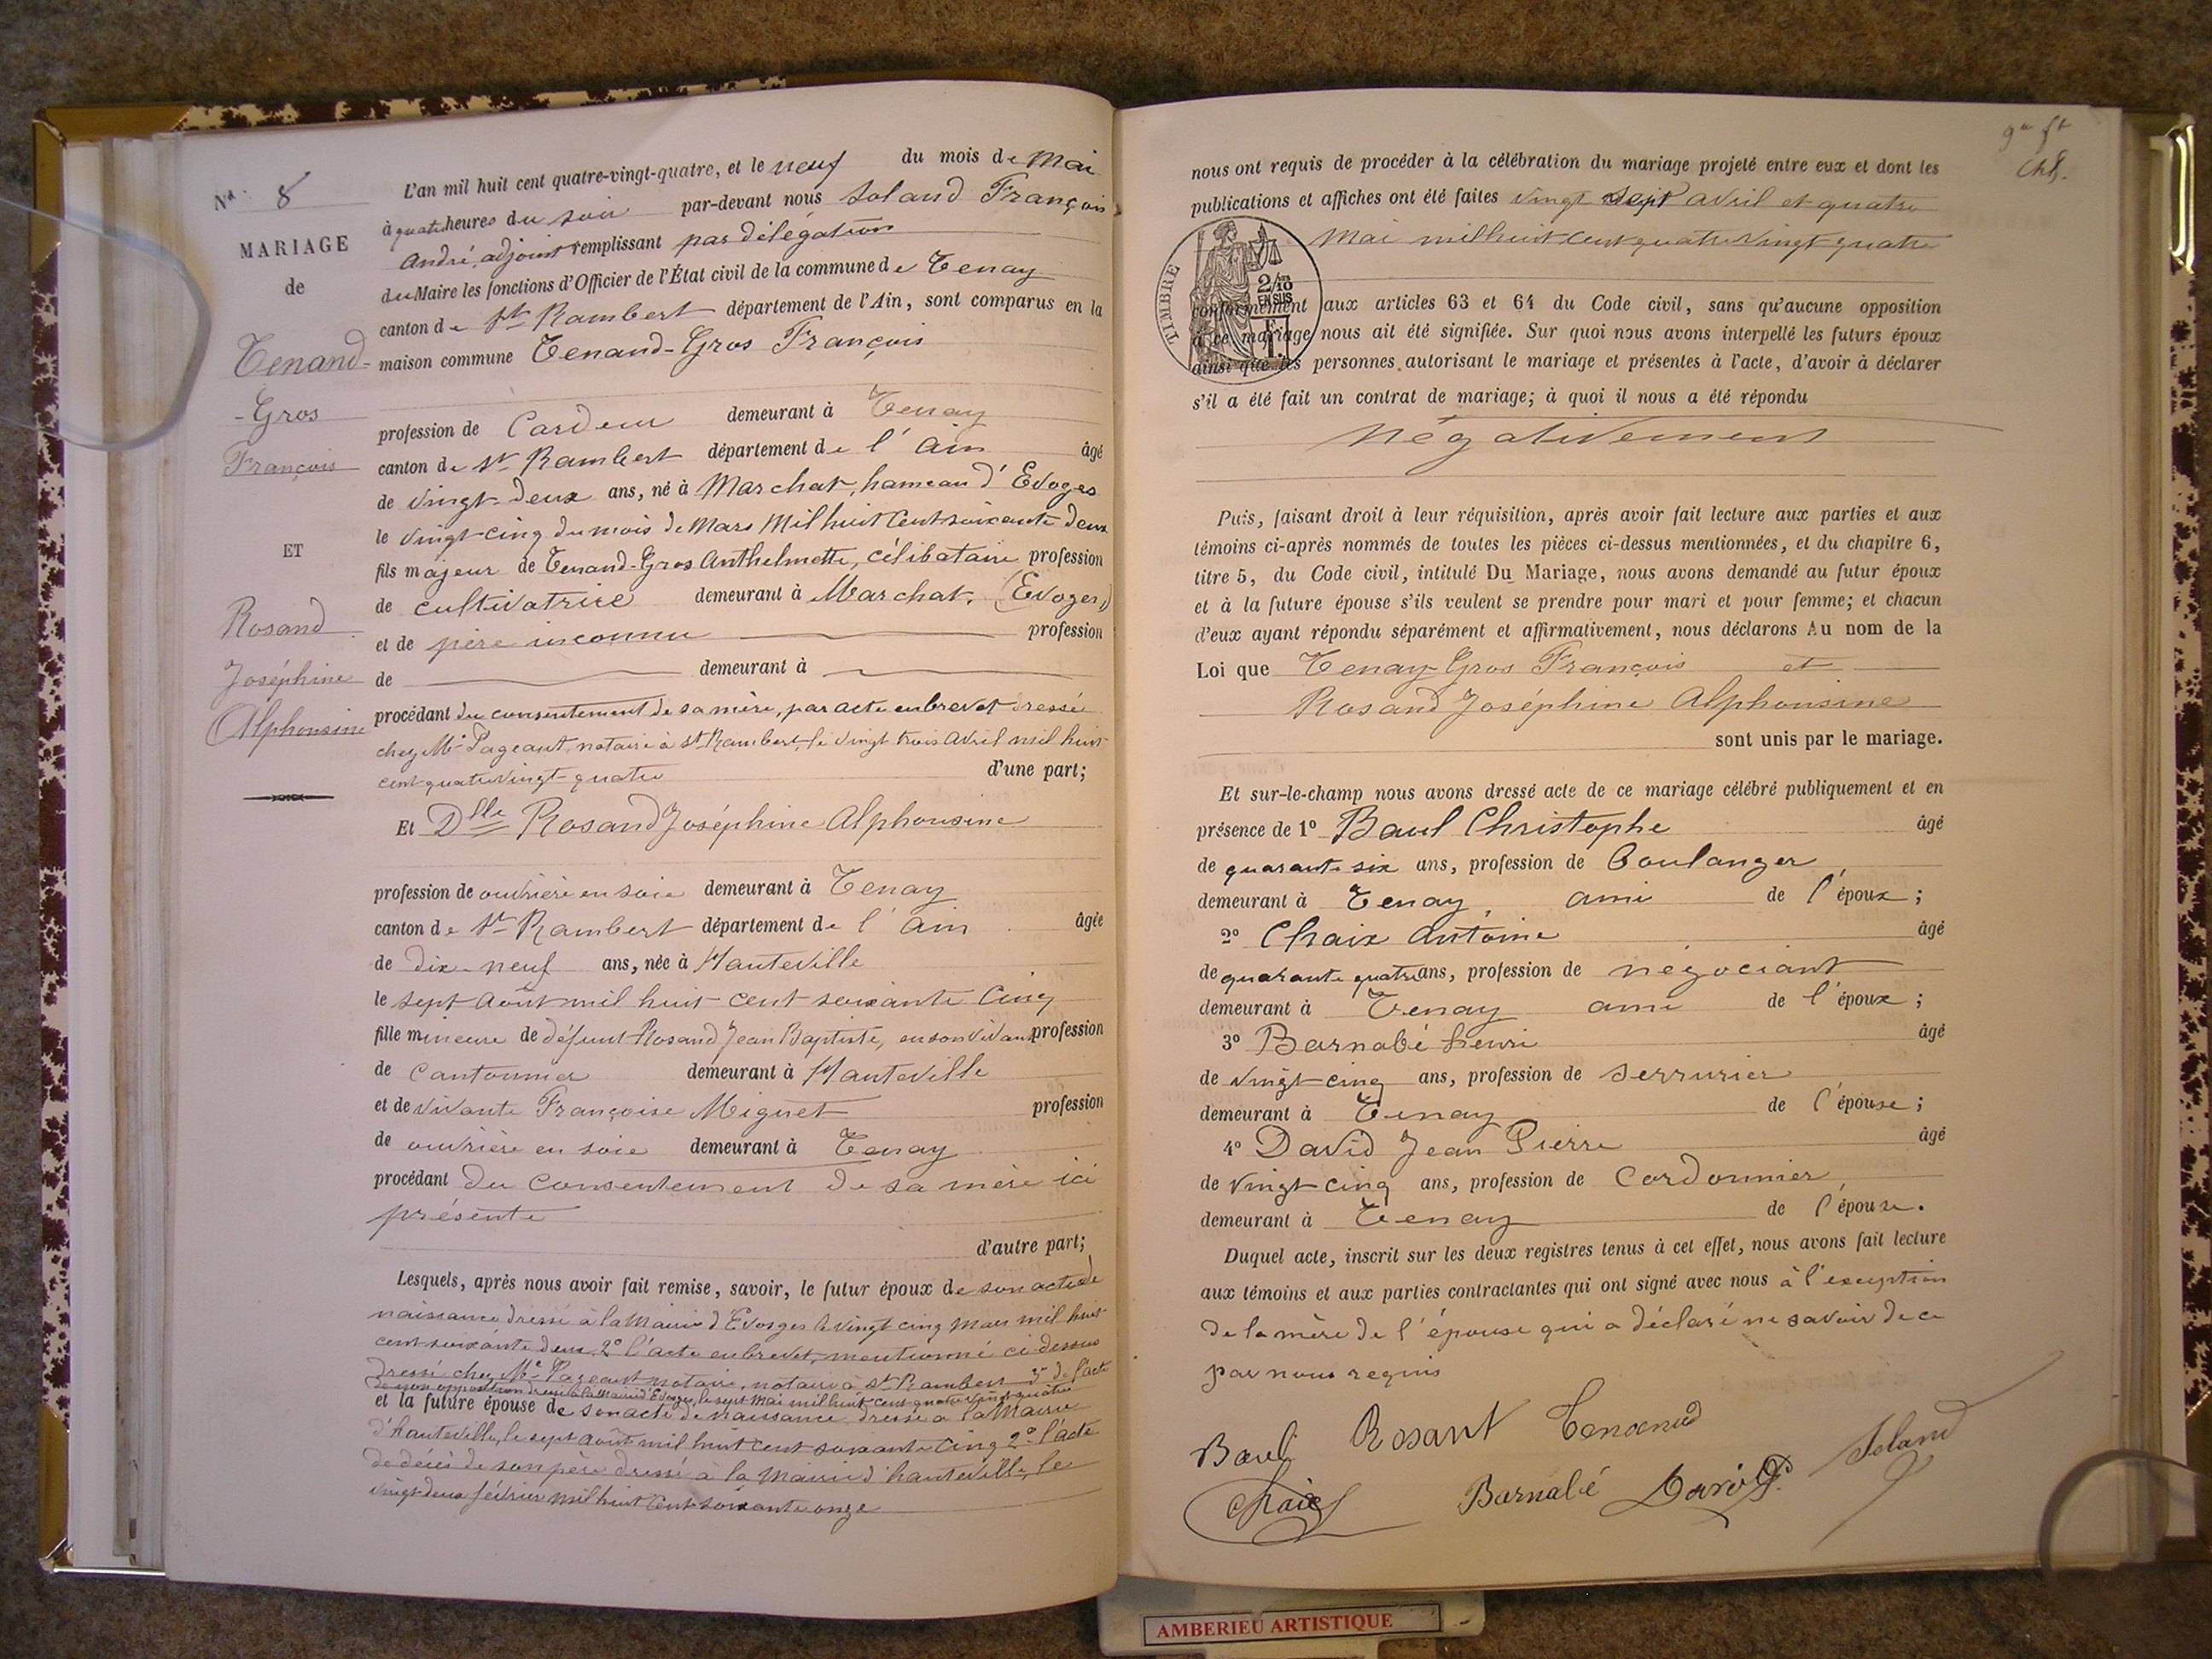 Nº 8
MARIAGE
de
Tenand-
-Gros
François
ET
Rosand
Joséphine
Alphonsine
L'an mil huit cent quatre-vingt-quatre, et le neuf du mois de Mai
à quatre heures du soir par-devant nous Soland François
André, adjoint remplissant par délégation
du Maire les fonctions d'Officier de l'État civil de la commune de Tenay
canton de St Rambert département de l'Ain, sont comparus en la
maison commune Tenand-Gros François
profession de Cardeur demeurant à Tenay
canton de St Rambert département de l'Ain âgé
de vingt-deux ans, né à Marchat, hameau d'Evoges
le vingt-cinq du mois de Mars Mil huit cent soixante deux
fils majeur de Tenand-Gros Anthelmette, célibataire profession
de cultivatrice demeurant à Marchat, (Evoges)
et de père inconnu profession
de demeurant à
procédant du consentement de sa mère, par acte en brevet dressé
chez Me Pageaut, notaire à St Rambert, le vingt trois Avril mil huit
cent quatre vingt-quatre d'une part;
Et Dlle Rosand Joséphine Alphonsine
profession de ouvrière en soie demeurant à Tenay
canton de St Rambert département de l'Ain âgée
de dix-neuf ans, née à Hauteville
le sept Août mil huit cent soixante Cinq
fille mineure de défunt Rosand Jean Baptiste, en son vivant profession
de Cantonnier demeurant à Hauteville
et de vivante Françoise Miguet profession
de ouvrière en soie demeurant à Tenay
procédant du Consentement de sa mère ici
présente
d'autre part;
Lesquels, après nous avoir fait remise, savoir, le futur époux de son acte de
naissance dressé à la Mairie d'Evosges le vingt cinq Mars mil huit
cent soixante deux 2º l'acte en brevet, mentionné ci-dessus
dressé chez Me Pageaut notaire, notaire à St Rambert 3º de l'acte
de non opposition dressé à la Mairie d'Evoges, le sept Mai mil huit cent quatre vingt quatre
et la future épouse de son acte de naissance dressé à la Mairie
d'Hauteville, le sept août mil huit cent soixante Cinq 2º l'acte
de décès de son père dressé à la Mairie d'hauteville, le
vingt-deux février mil huit cent soixante onze
9e ft
nous ont requis de procéder à la célébration du mariage projeté entre eux et dont les
publications et affiches ont été faites vingt sept avril et quatre
Mai mil huit cent quatre vingt quatre
TIMBRE
2/10
EN SUS
conformément aux articles 63 et 64 du Code civil, sans qu'aucune opposition
à ce mariage nous ait été signifiée. Sur quoi nous avons interpellé les futurs époux
ainsi que les personnes autorisant le mariage et présentes à l'acte, d'avoir à déclarer
s'il a été fait un contrat de mariage; à quoi il nous a été répondu
Négativement
Puis, faisant droit à leur réquisition, après avoir fait lecture aux parties et aux
témoins ci-après nommés de toutes les pièces ci-dessus mentionnées, et du chapitre 6,
titre 5, du Code civil, intitulé Du Mariage, nous avons demandé au futur époux
et à la future épouse s'ils veulent se prendre pour mari et pour femme; et chacun
d'eux ayant répondu séparément et affirmativement, nous déclarons Au nom de la
Loi que Tenay-Gros François et
Rosand Joséphine Alphonsine
sont unis par le mariage.
Et sur-le-champ nous avons dressé acte de ce mariage célébré publiquement et en
présence de 1º Baul Christophe âgé
de quarante six ans, profession de Boulanger
demeurant à Tenay, ami de l'époux;
2º Chaix Antoine âgé
de quarante quatre ans, profession de négociant
demeurant à Tenay ami de l'époux;
3º Barnabé henri âgé
de vingt cinq ans, profession de serrurier
demeurant à Tenay de l'épouse;
4º David Jean Pierre âgé
de vingt cinq ans, profession de Cordonnier
demeurant à Tenay de l'épouse.
Duquel acte, inscrit sur les deux registres tenus à cet effet, nous avons fait lecture
aux témoins et aux parties contractantes qui ont signé avec nous à l'exception
de la mère de l'épouse qui a déclaré ne savoir de ce
par nous requis
Baul Rosant Tenand
Soland
Chaix Barnabé David
AMBERIEU ARTISTIQUE